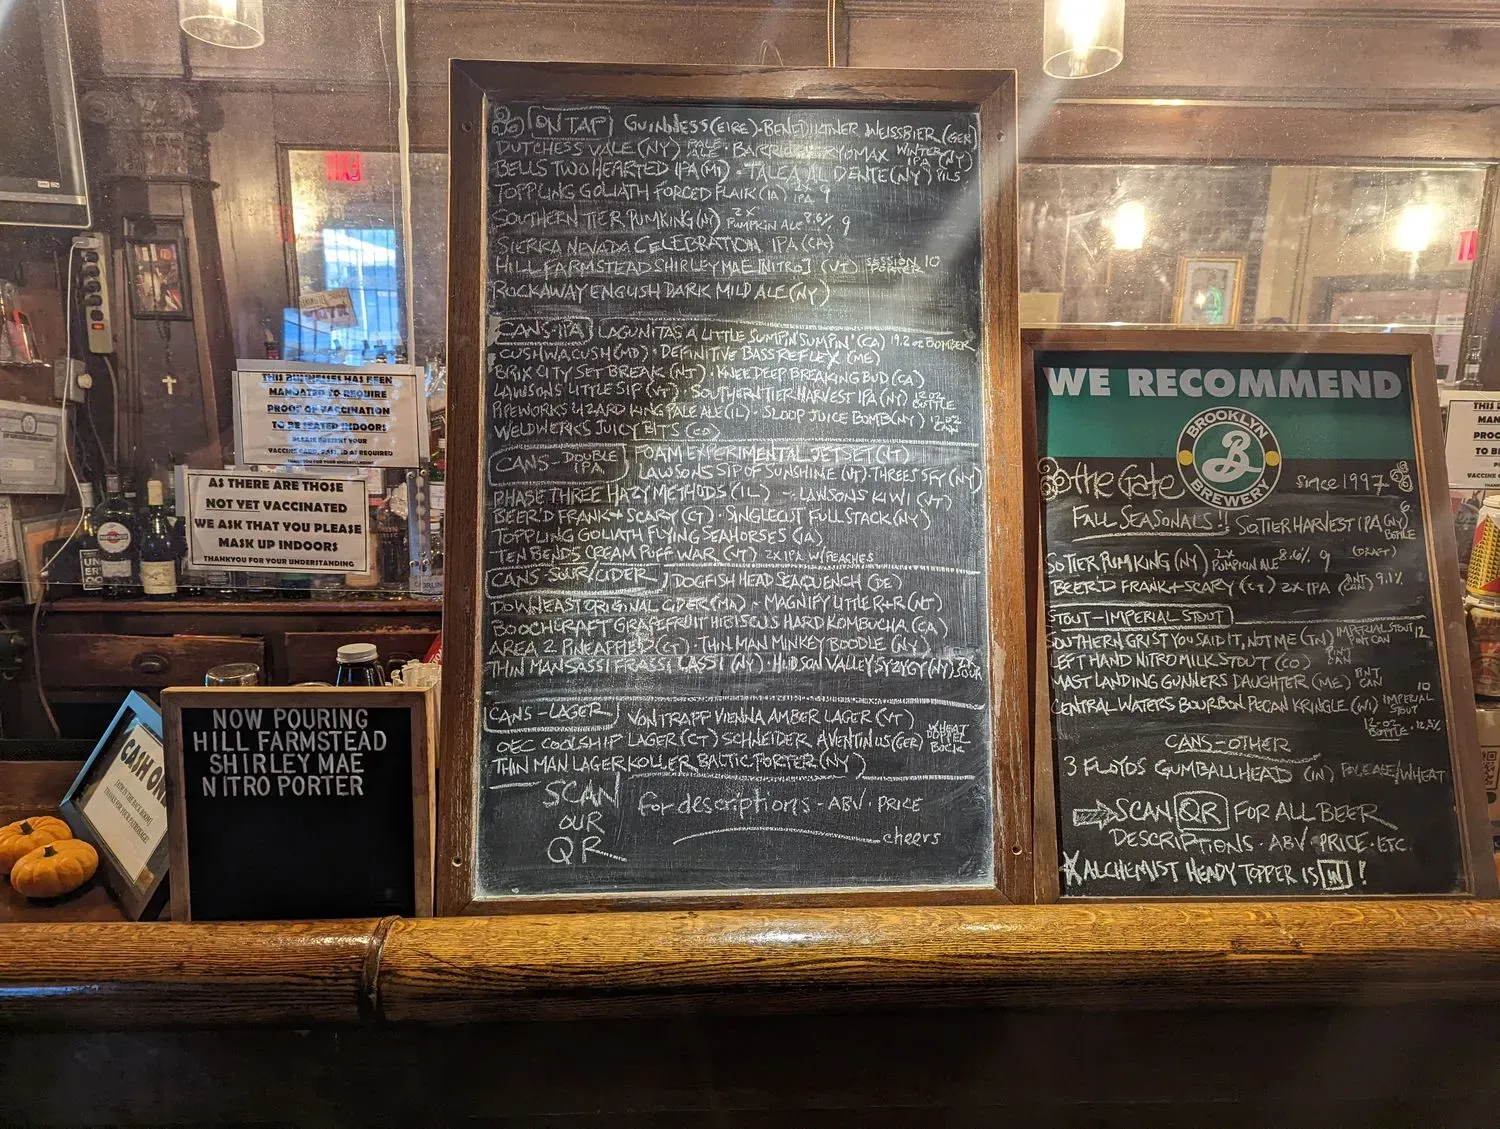 THIS BUSINESSES HAS BEEN
MANDATED TO REQUIRE
PROOF OF VACCINATION
TO BE SEATED INDOORS
PLEASE PRESENT YOUR
VACCINE CARD, PASS, ID AS REQUIRED
THANK YOU FOR YOUR UNDERSTANDING
AS THERE ARE THOSE
NOT YET VACCINATED
WE ASK THAT YOU PLEASE
MASK UP INDOORS
THANKYOU FOR YOUR UNDERSTANDING
CASH ON
NOW POURING
HILL FARMSTEAD
SHIRLEY MAE
NITRO PORTER
ON TAP GUINNESS (EIRE) · BENEDIKTINER WEISSBIER (GER)
DUTCHESS VALE (NY) PALE ALE · BARRIER CRYOMAX WINTER IPA (NY)
BELLS TWO HEARTED IPA (MI) · TALEA AL DENTE (NY) PILS
TOPPLING GOLIATH FORCED FLAIR (IA) 2X IPA 9
SOUTHERN TIER PUMKING (NY) 2X PUMPKIN ALE 8.6% 9
SIERRA NEVADA CELEBRATION IPA (CA)
HILL FARMSTEAD SHIRLEY MAE [NITRO] (VT) SESSION PORTER 10
ROCKAWAY ENGLISH DARK MILD ALE (NY)
CANS-IPA LAGUNITAS A LITTLE SUMPIN' SUMPIN' (CA) 19.2 oz BOMBER
CUSHWA CUSH (MD) · DEFINITIVE BASS REFLEX (ME)
BRIX CITY SET BREAK (NJ) · KNEE DEEP BREAKING BUD (CA)
LAWSONS LITTLE SIP (VT) · SOUTHERN TIER HARVEST IPA (NY) 12 OZ BOTTLE
PIPEWORKS LIZARD KING PALE ALE (IL) · SLOOP JUICE BOMB (NY) 12 oz CAN
WELDWERKS JUICY BITS (CO)
CANS-DOUBLE IPA FOAM EXPERIMENTAL JET SET (VT)
LAWSONS SIP OF SUNSHINE (VT) · THREES SFY (NY)
PHASE THREE HAZY METHODS (IL) - LAWSONS KIWI (VT)
BEER'D FRANK + SCARY (CT) · SINGLECUT FULL STACK (NY)
TOPPLING GOLIATH FLYING SEAHORSES (IA)
TEN BENDS CREAM PUFF WAR (VT) 2X IPA W/PEACHES
CANS-SOUR/CIDER DOGFISH HEAD SEAQUENCH (DE)
DOWNEAST ORIGINAL CIDER (MA) - MAGNIFY LITTLE R+R (NJ)
BOOCHCRAFT GRAPEFRUIT HIBISCUS HARD KOMBUCHA (CA)
AREA 2 PINEAPPLED (CT) · THIN MAN MINKEY BOODLE (NY)
THIN MAN SASSI FRASSI CASSI (NY) · HUDSON VALLEY SYZYGY (NY) SOUR
CANS-LAGER VON TRAPP VIENNA AMBER LAGER (VT)
OEC COOLSHIP LAGER (CT) SCHNEIDER AVENTINUS (GER) WHEAT DOPPEL BOCK
THIN MAN LAGER KOLLER BALTIC PORTER (NY)
SCAN
OUR
QR
for descriptions - ABV · PRICE
cheers
WE RECOMMEND
BROOKLYN
B
BREWERY
the Gate since 1997
FALL SEASONALS!! SO.TIER HARVEST IPA (NY) BOTTLE
SO TIER PUMKING (NY) 2X PUMPKIN ALE 8.6% 9 (DRAFT)
BEER'D FRANK + SCARY (CT) 2X IPA (PINT CAN) 9.1%
STOUT-IMPERIAL STOUT
SOUTHERN GRIST YOU SAID IT, NOT ME (TN) IMPERIAL STOUT PINT CAN 12
LEFT HAND NITRO MILK STOUT (CO) PINT CAN
MAST LANDING GUNNERS DAUGHTER (ME) PINT CAN
CENTRAL WATERS BOURBON PECAN KRINGLE (WI) 10 IMPERIAL STOUT
12-OZ BOTTLE · 12.5%
CANS-OTHER
3 FLOYDS GUMBALLHEAD (IN) PALE ALE/WHEAT
SCAN QR FOR ALL BEER
DESCRIPTIONS · ABV · PRICE · ETC.
ALCHEMIST HEADY TOPPER IS IN!